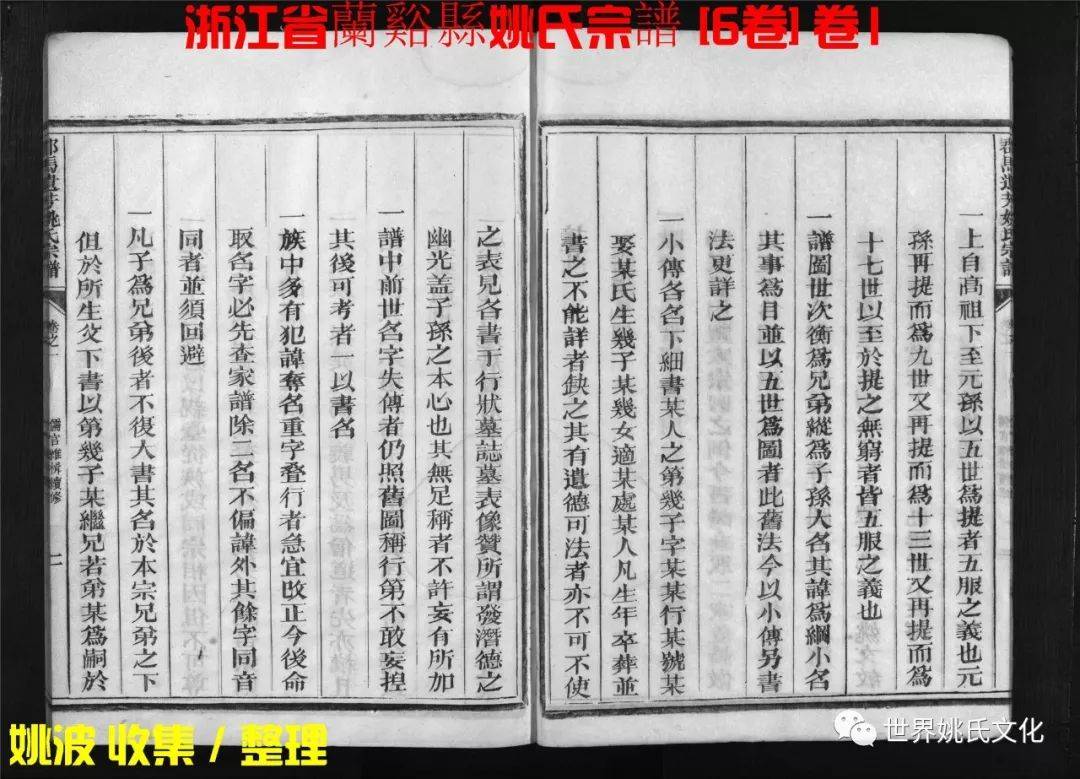 浙江省蘭谿縣姚氏宗譜 [6卷] 卷1
郡馬遺芳姚氏宗譜
一上自高祖下至元孫以五世爲提者五服之義也元
孫再提而爲九世又再提而爲十三世又再提而爲
十七世以至於提之無窮者皆五服之義也
一譜圖世次衡爲兄弟縱爲子孫大名其諱爲綱小名
其事爲目並以五世爲圖者此舊法今以小傳另書
法更詳之
一小傳各名下細書某人之第幾子字某某行某號某
娶某氏生幾子某幾女適某處某人凡生年卒葬並
書之不能詳者缺之其有遺德可法者亦不可不使
之表見各書于行狀墓誌墓表像贊所謂發潛德之
幽光盖子孫之本心也其無足稱者不許妄有所加
一譜中前世名字失傳者仍照舊圖稱行第不敢妄揑
其後可考者一以書名
一族中多有犯諱奪名重字疊行者急宜改正今後命
取名字必先查家譜除二名不偏諱外其餘字同音
同者並須回避
一凡子爲兄弟後者不復大書其名於本宗兄弟之下
但於所生父下書以第幾子某繼兄若弟某爲嗣於
郡馬遺芳姚氏宗譜
卷之一
儒官維楫續修
二
姚波 收集 / 整理
世界姚氏文化